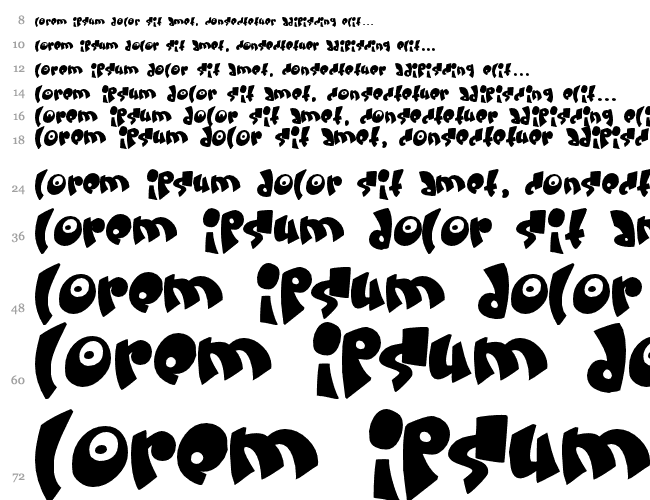 8 Lorem ipsum dolor sit amet, consectetuer adipiscing elit...
10 Lorem ipsum dolor sit amet, consectetuer adipiscing elit...
12 Lorem ipsum dolor sit amet, consectetuer adipiscing elit...
14 Lorem ipsum dolor sit amet, consectetuer adipiscing elit...
16 Lorem ipsum dolor sit amet, consectetuer adipiscing eli
18 Lorem ipsum dolor sit amet, consectetuer adipisc
24 Lorem ipsum dolor sit amet, consect
36 Lorem ipsum dolor sit am
48 Lorem ipsum dolor
60 Lorem ipsum do
72 Lorem ipsum